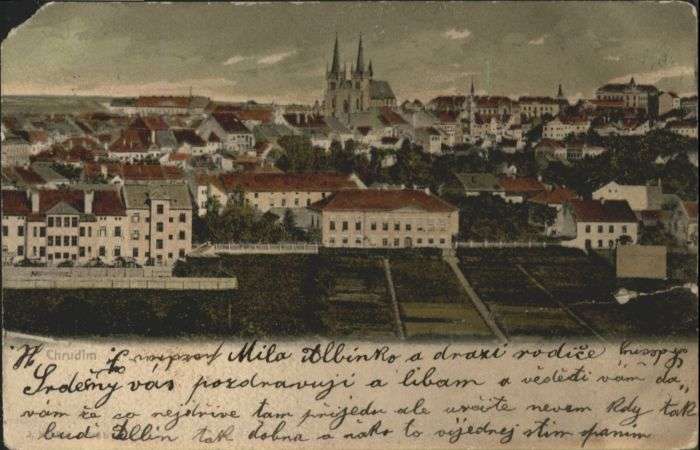 Chrudim
Mila Albinko a drazí rodiče
Srdečny vás pozdravuji a libam a věděti vám da
vám že co nejdrive tam prijedu ale určite nevem kdy tak
budi Albin tak dobna a nako to vijednej stim panim